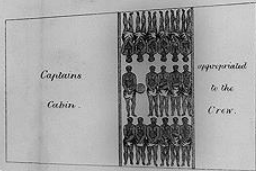 Captains
Cabin.
appropriated
to the
Crew.